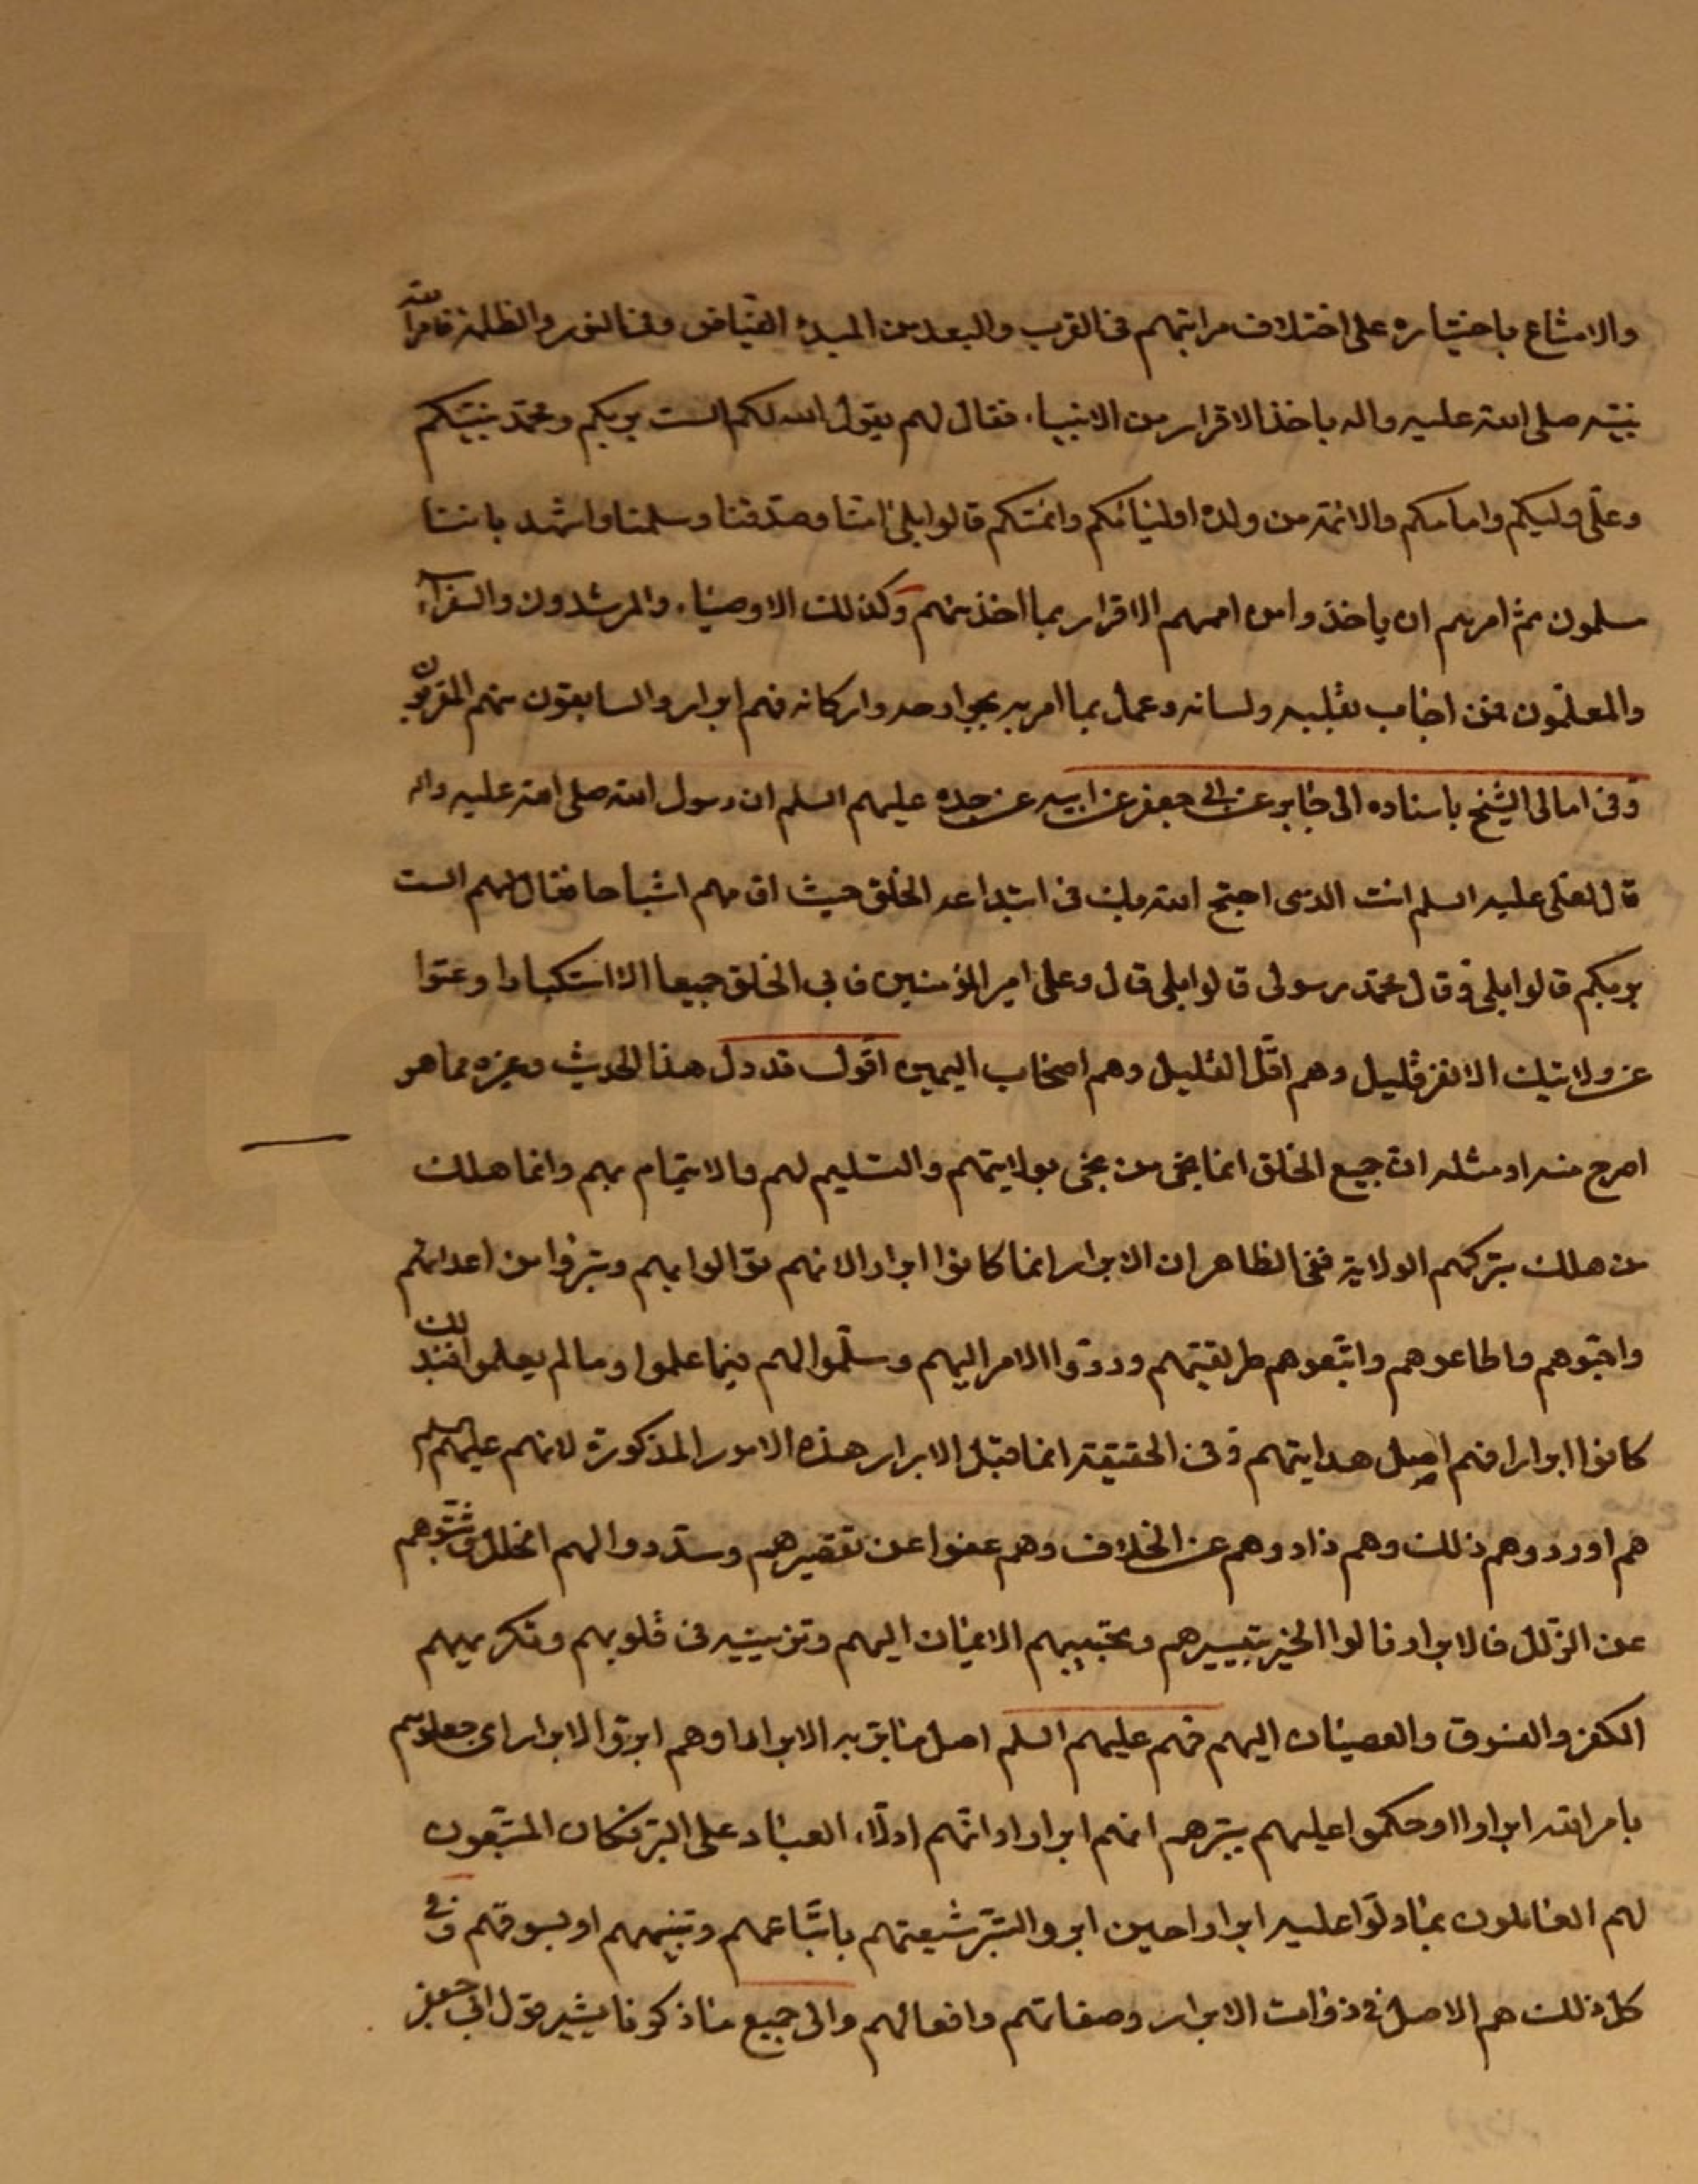 والامتناع باختياره على اختلاف مراتبهم في القرب والبعد من المبدء الفياض وفي النور والظلمة فامر الله
نبيّه صلى الله عليه واله باخذ الاقرار من الانبياء فقال لهم يقول الله لكم الست بربكم ومحمّد نبيّكم
وعلّي وليكم وامامكم والائمة من ولده اوليائكم وائمتكم قالوا بلى امنّا وصدّقنا وسلمنا واشهد باننا
مسلمون ثم امرهم ان ياخذوا من اممهم الاقرار بما اخذ منهم وكذلك الاوصياء والمرشدون والسفراء
والمعلّمون فمن اجاب بقلبه ولسانه وعمل بما امر به بجوارحه واركانه فهم ابرار والسابقون منهم المقربون
وفي امالي الشيخ باسناده الى جابر عن ابي جعفر عن ابيه عن جده عليهم السلم ان رسول الله صلى الله عليه واله
قال لعلي عليه السلم انت الذى احتج الله بك في ابتداعه الخلق حيث اقامهم اشباحا فقال لهم الست
بربكم قالوا بلى وقال محمّد رسولى قالوا بلى قال وعلى امير المؤمنين فابى الخلق جميعا الا استكبارا وعتوا
عن ولايتك الا نفر قليل وهم اقلّ القليل وهم اصحاب اليمين اقول قد دل هذا الحديث وغيره مما هو
اصرح منه او مثله ان جميع الخلق انما نجى من نجى بولايتهم والتسليم لهم والايتمام بهم وانما هلك
من هلك بتركهم الولاية ففي الظاهر ان الابرار انما كانوا ابرار الانهم توالوا بهم وتبرؤا من اعدائهم
واحبّوهم واطاعوهم واتّبعوهم طريقتهم وردّوا الامر اليهم وسلّموا لهم فيما علموا وما لم يعلموا فبذلك
كانوا ابرارا فهم اصل هدايتهم وفي الحقيقة انما قبل الابرار هذه الامور المذكورة لانهم عليهم السلم
هم اوردوهم ذلك وهم ذادوهم عن الخلاف وهم عفوا عن تقصيرهم وسدّدوا لهم الخلل وثبّتوهم
عن الزلل فالابرار نالوا الخير بتيسيرهم وتحبيبهم الايمان اليهم وتزيينه في قلوبهم وتكريههم
الكفر والفسوق والعصيان اليهم فهم عليهم السلم اصل ما برّ به الابرار اوهم ابرّوا الابرار اى جعلوهم
بامر الله ابرارا او حكموا عليهم ببرّهم انهم ابرار او انّهم ادلّاء العباد على البرّ فكان المتّبعون
لهم العاملون بما دلّوا عليه ابرارا حين ابروا البرّ شيعتهم باتّباعهم وتنبيههم او بسوقهم وفي
كل ذلك هم الاصل في ذوات الابرار وصفاتهم وافعالهم والى جميع ما ذكرنا يشير قول ابي جعفر